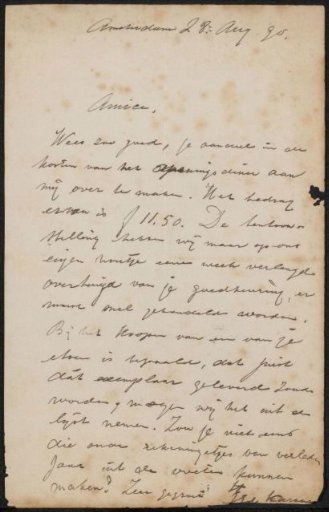 Amsterdam 28 Aug 90.
Amice,
Wees zoo goed, je aandeel in de
kosten van het openingsdiner aan
mij over te maken. Het bedrag
ervan is ƒ 11.50. De tentoon-
stelling hebben wij maar op ons
eigen houtje eene week verlengd
overtuigd van je goedkeuring, er
moest snel gehandeld worden.
Bij het koopen van een van je
etsen is bepaald, dat juist
dát exemplaar geleverd zoude
worden, mogen wij het uit de
lijst nemen. Zou je niet eens
die onze rekeningetjes van verleden
jaar uit de voeten kunnen
maken? Zeer gegroet